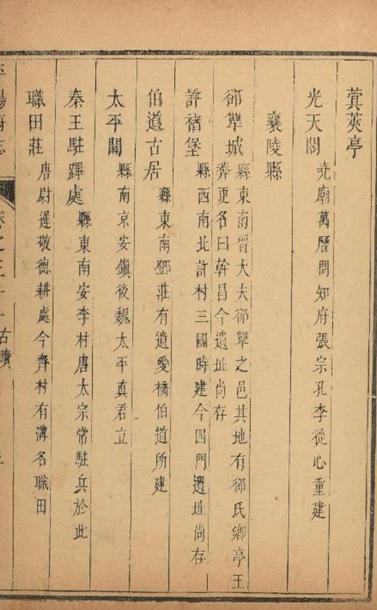 蓂莢亭
光天閣 堯廟萬曆間知府張宗孔李從心重建
襄陵縣
郤犨城 縣東南晉大夫郤犨之邑其地有郤氏鄉亭王
莽更名曰幹昌今遺址尚存
許褚堡 縣西南北許村三國時建今四門遺址尚存
伯道古居 縣東南鄧莊有遺愛橋伯道所建
太平關 縣南京安鎮後魏太平真君立
秦王駐蹕處 縣東南安李村唐太宗常駐兵於此
職田莊 唐尉遲敬德耕處今齊村有溝名職田
平陽府志 卷之三十一 古蹟